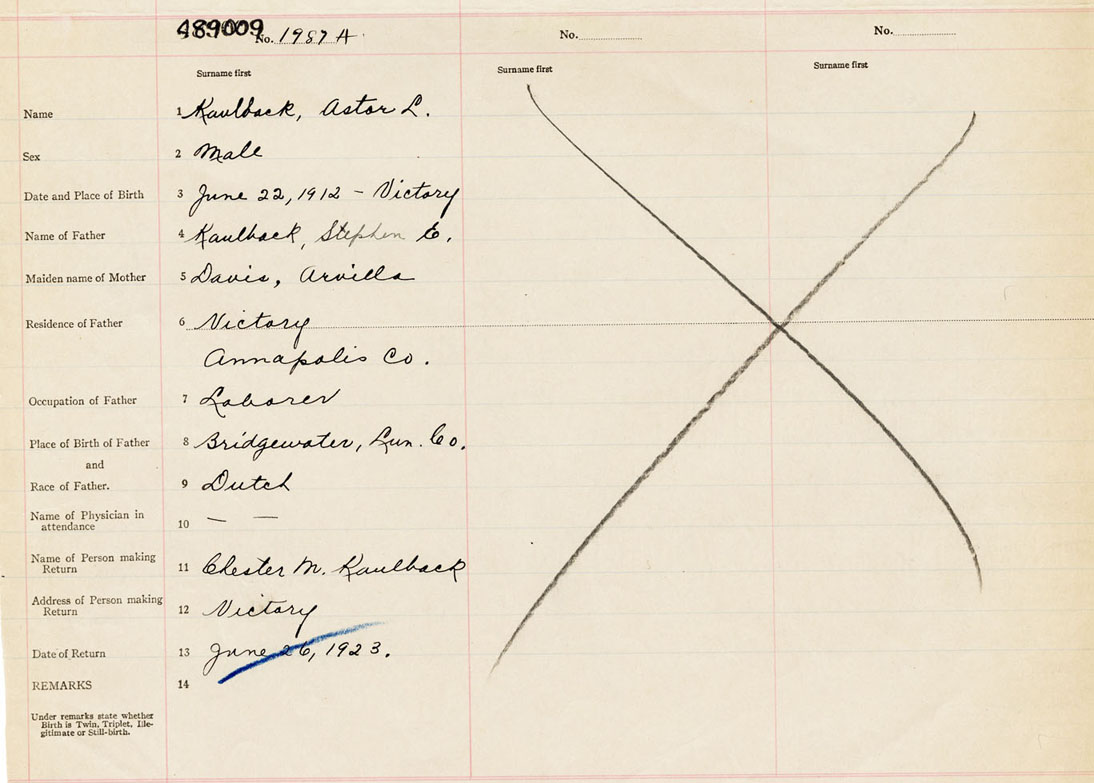 489009
No. 1987 A
No.
No.
Surname first
Surname first
Surname first
Name 1 Kaulback, Astor L.
Sex 2 Male
Date and Place of Birth 3 June 22, 1912 - Victory
Name of Father 4 Kaulback, Stephen E.
Maiden name of Mother 5 Davis, Arvilla
Residence of Father 6 Victory
Annapolis Co.
Occupation of Father 7 Laborer
Place of Birth of Father 8 Bridgewater, Lun. Co.
and
Race of Father. 9 Dutch
Name of Physician in
attendance 10 — —
Name of Person making
Return 11 Chester M. Kaulback
Address of Person making
Return 12 Victory
Date of Return 13 June 26, 1923.
REMARKS 14
Under remarks state whether
Birth is Twin, Triplet, Ille-
gitimate or Still-birth.